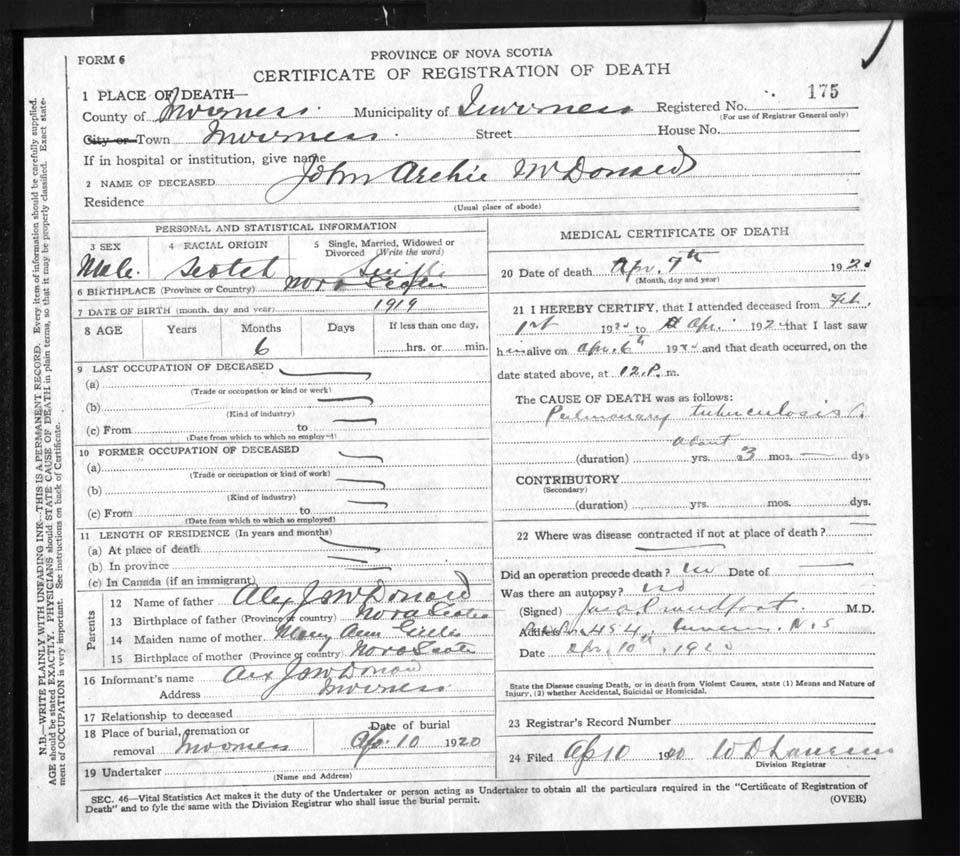 FORM 6
PROVINCE OF NOVA SCOTIA
CERTIFICATE OF REGISTRATION OF DEATH
1 PLACE OF DEATH—
County of Inverness Municipality of Inverness Registered No. 175
(For use of Registrar General only)
City or Town Inverness Street House No.
If in hospital or institution, give name
2 NAME OF DECEASED John Archie McDonald
Residence
(Usual place of abode)
PERSONAL AND STATISTICAL INFORMATION
3 SEX Male.
4 RACIAL ORIGIN Scotch
5 Single, Married, Widowed or Divorced (Write the word) Single
6 BIRTHPLACE (Province or Country) Nova Scotia
7 DATE OF BIRTH (month, day and year) 1919
8 AGE Years Months Days If less than one day,
6 hrs. or min.
9 LAST OCCUPATION OF DECEASED
(a)
(Trade or occupation or kind of work)
(b)
(Kind of industry)
(c) From to
(Date from which to which so employed)
10 FORMER OCCUPATION OF DECEASED
(a)
(Trade or occupation or kind of work)
(b)
(Kind of industry)
(c) From to
(Date from which to which so employed)
11 LENGTH OF RESIDENCE (In years and months)
(a) At place of death
(b) In province
(c) In Canada (if an immigrant)
Parents
12 Name of father Alex J McDonald
13 Birthplace of father (Province or country) Nova Scotia
14 Maiden name of mother Mary Ann Gillis
15 Birthplace of mother (Province or country) Nova Scotia
16 Informant's name Alex J McDonald
Address Inverness
17 Relationship to deceased
18 Place of burial, cremation or removal Inverness Date of burial Ap. 10 1920
19 Undertaker
(Name and Address)
MEDICAL CERTIFICATE OF DEATH
20 Date of death Apr. 7th 1920
(Month, day and year)
21 I HEREBY CERTIFY, that I attended deceased from Feb.
1st 1920 to Apr. 1920 that I last saw
him alive on Apr. 6th 1920 and that death occurred, on the
date stated above, at 12.P. m.
The CAUSE OF DEATH was as follows:
Pulmonary tuberculosis
about
(duration) yrs. 3 mos. — dys
CONTRIBUTORY
(Secondary)
(duration) yrs. mos. dys.
22 Where was disease contracted if not at place of death?
Did an operation precede death? no Date of
Was there an autopsy? no
(Signed) M.D.
Address Inverness, N.S
Date Apr. 10th, 1920
State the Disease causing Death, or in death from Violent Causes, state (1) Means and Nature of
Injury, (2) whether Accidental, Suicidal or Homicidal.
23 Registrar's Record Number
24 Filed Ap 10 1920
Division Registrar
SEC. 46—Vital Statistics Act makes it the duty of the Undertaker or person acting as Undertaker to obtain all the particulars required in the "Certificate of Registration of
Death" and to fyle the same with the Division Registrar who shall issue the burial permit.
(OVER)
N.B.—WRITE PLAINLY WITH UNFADING INK—THIS IS A PERMANENT RECORD. Every item of information should be carefully supplied.
AGE should be stated EXACTLY. PHYSICIANS should STATE CAUSE OF DEATH in plain terms, so that it may be properly classified. Exact state-
ment of OCCUPATION is very important. See instructions on back of Certificate.